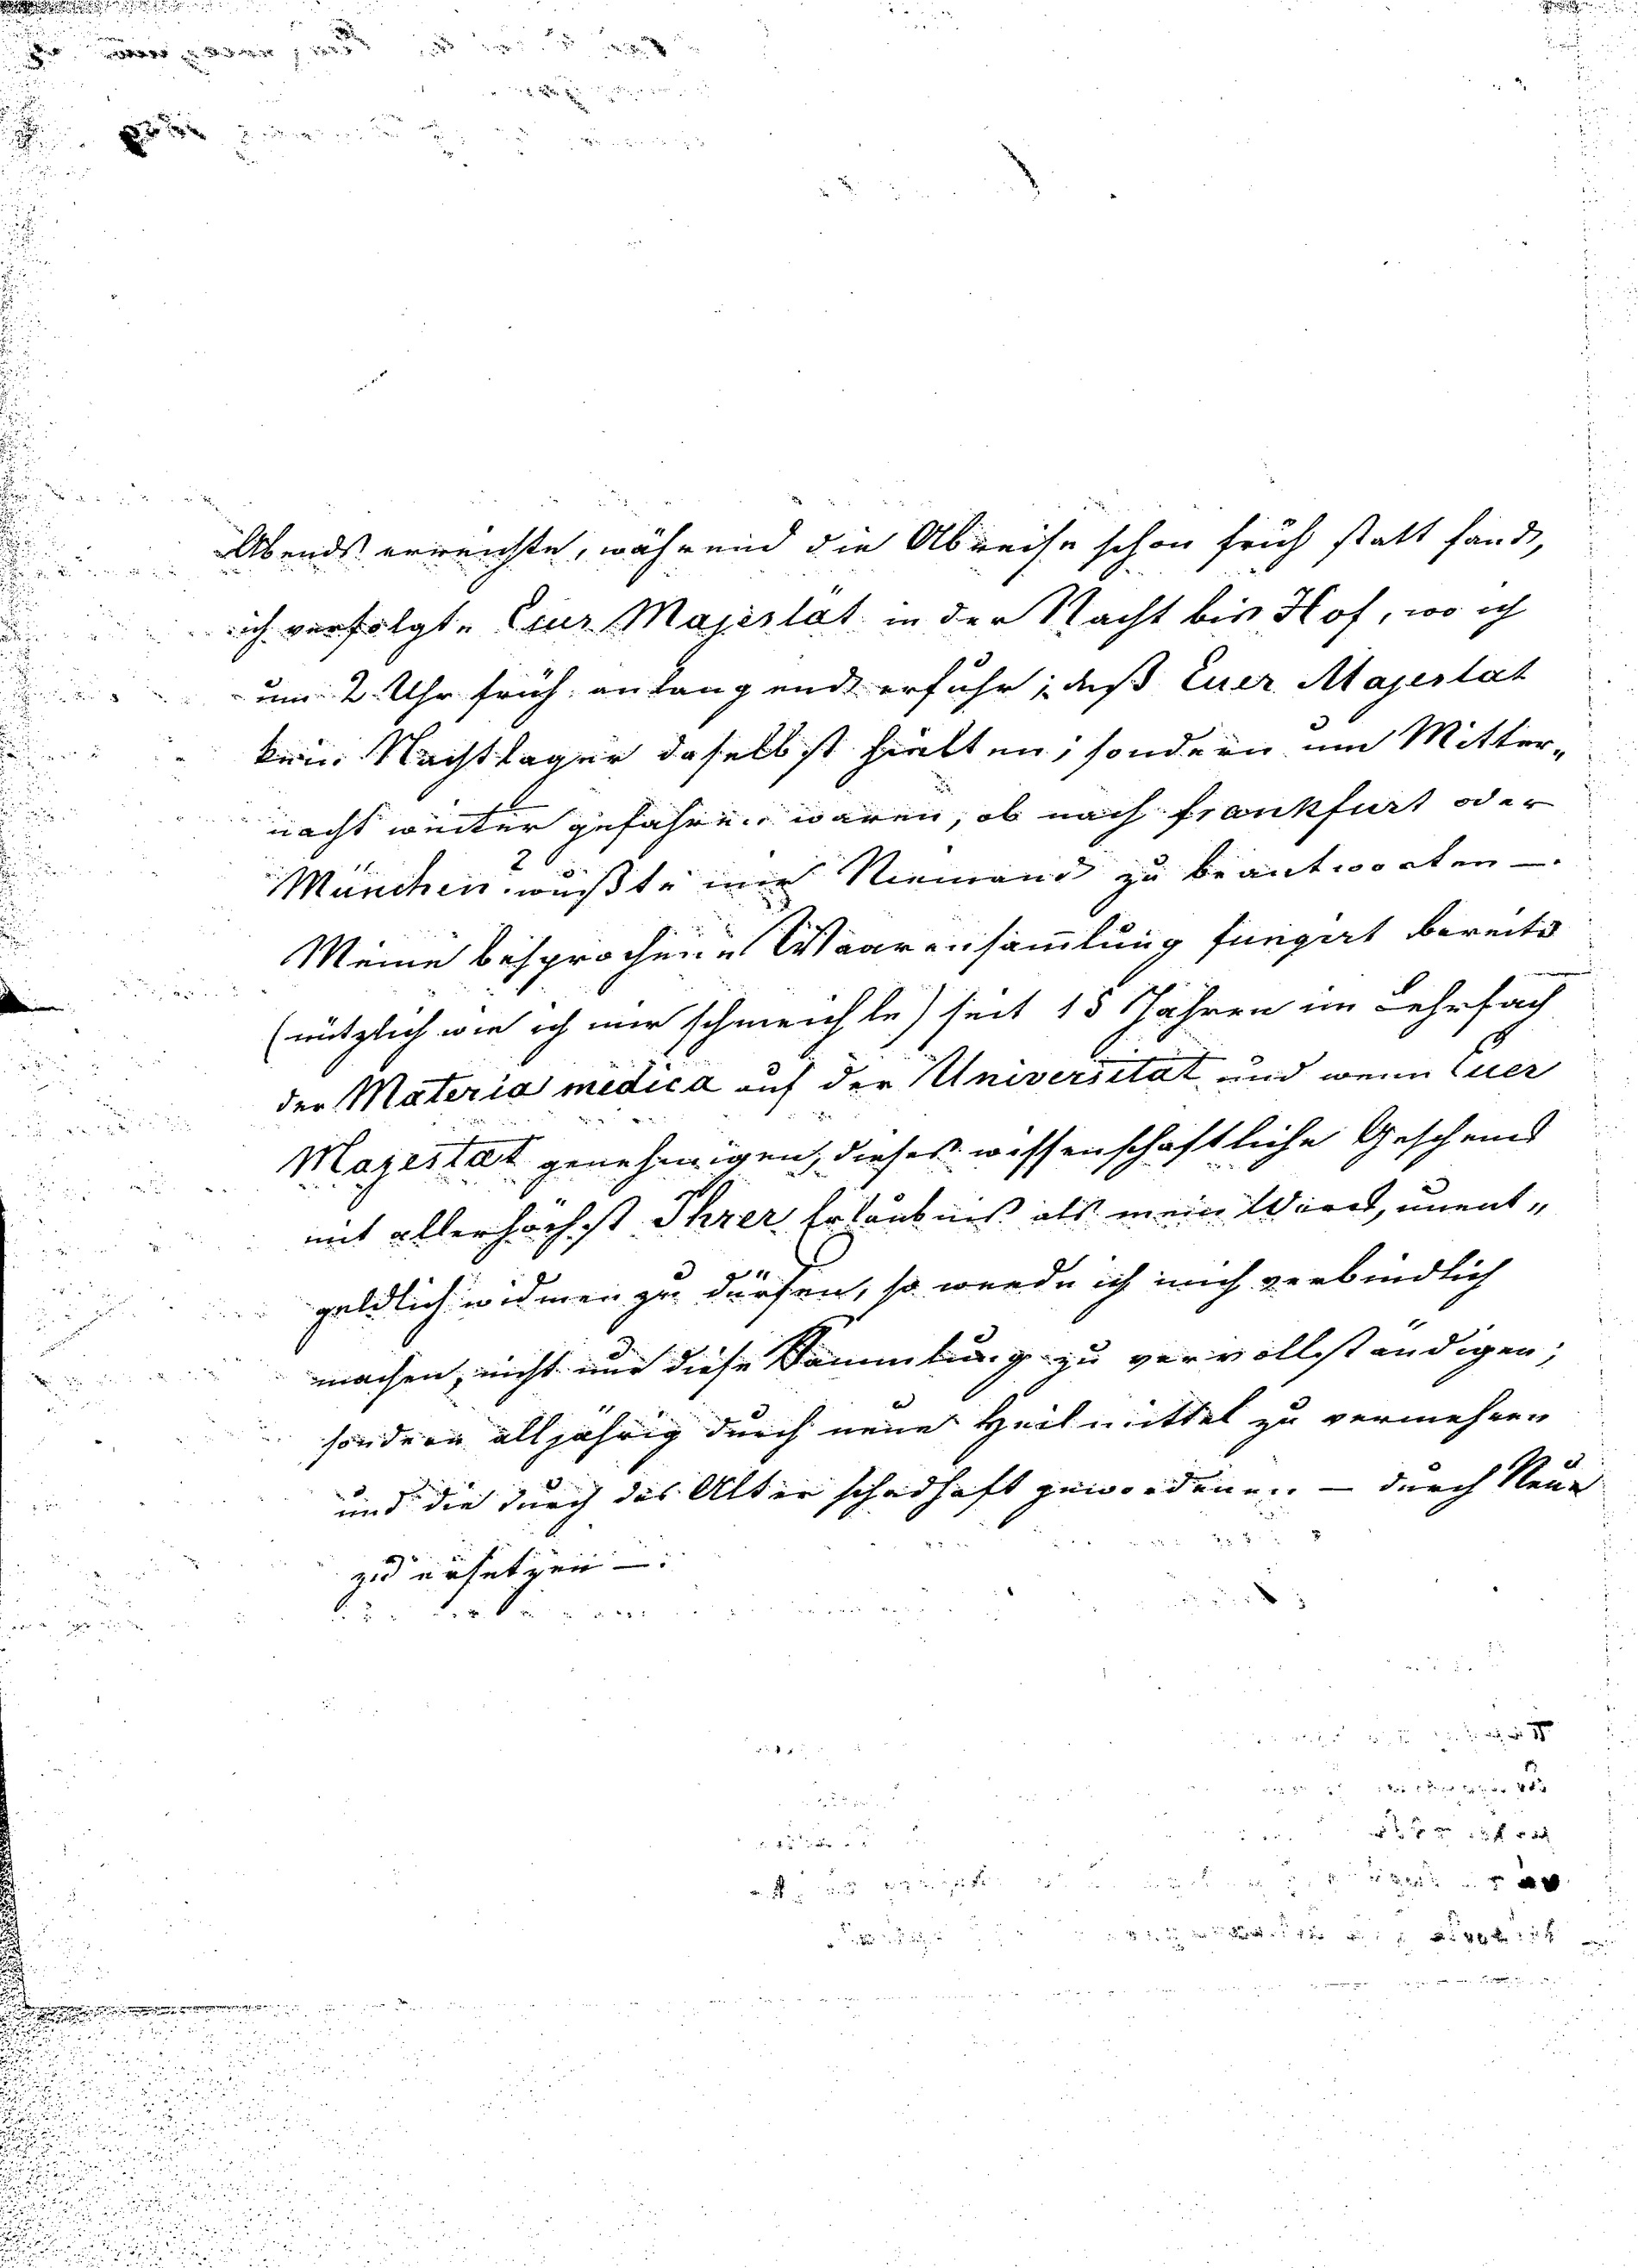 Abends erreichte, während die Abreise schon früh statt fand,
ich verfolgte Euer Majestät in der Nacht bis Hof, wo ich
um 2 Uhr früh anlangend erfuhr; daß Euer Majestät
kein Nachtlager daselbst hielten; sondern um Mitter„
nacht weiter gefahren waren, ob nach Frankfurt oder
München? wußte mir Niemand zu beantworten —.
Meine besprochene Waarensam̄lung fungirt bereits
(nützlich wie ich mir schmeichle) seit 15 Jahren im Lehrfach
der Materia medica auf der Universität und wenn Euer
Majestät genehmigen, dieses wissenschaftliche Geschenk
mit allerhöchst Ihrer Erlaubniß als mein unent„
geldlich widmen zu dürfen, so werde ich mich verbindlich
machen, nicht nur diese Sammlung zu vervollständigen;
sondern alljährig durch neue Heilmittel zu vermehren
und die durch das Alter schadhaft gewordenen — durch Neue
zu ersetzen —.